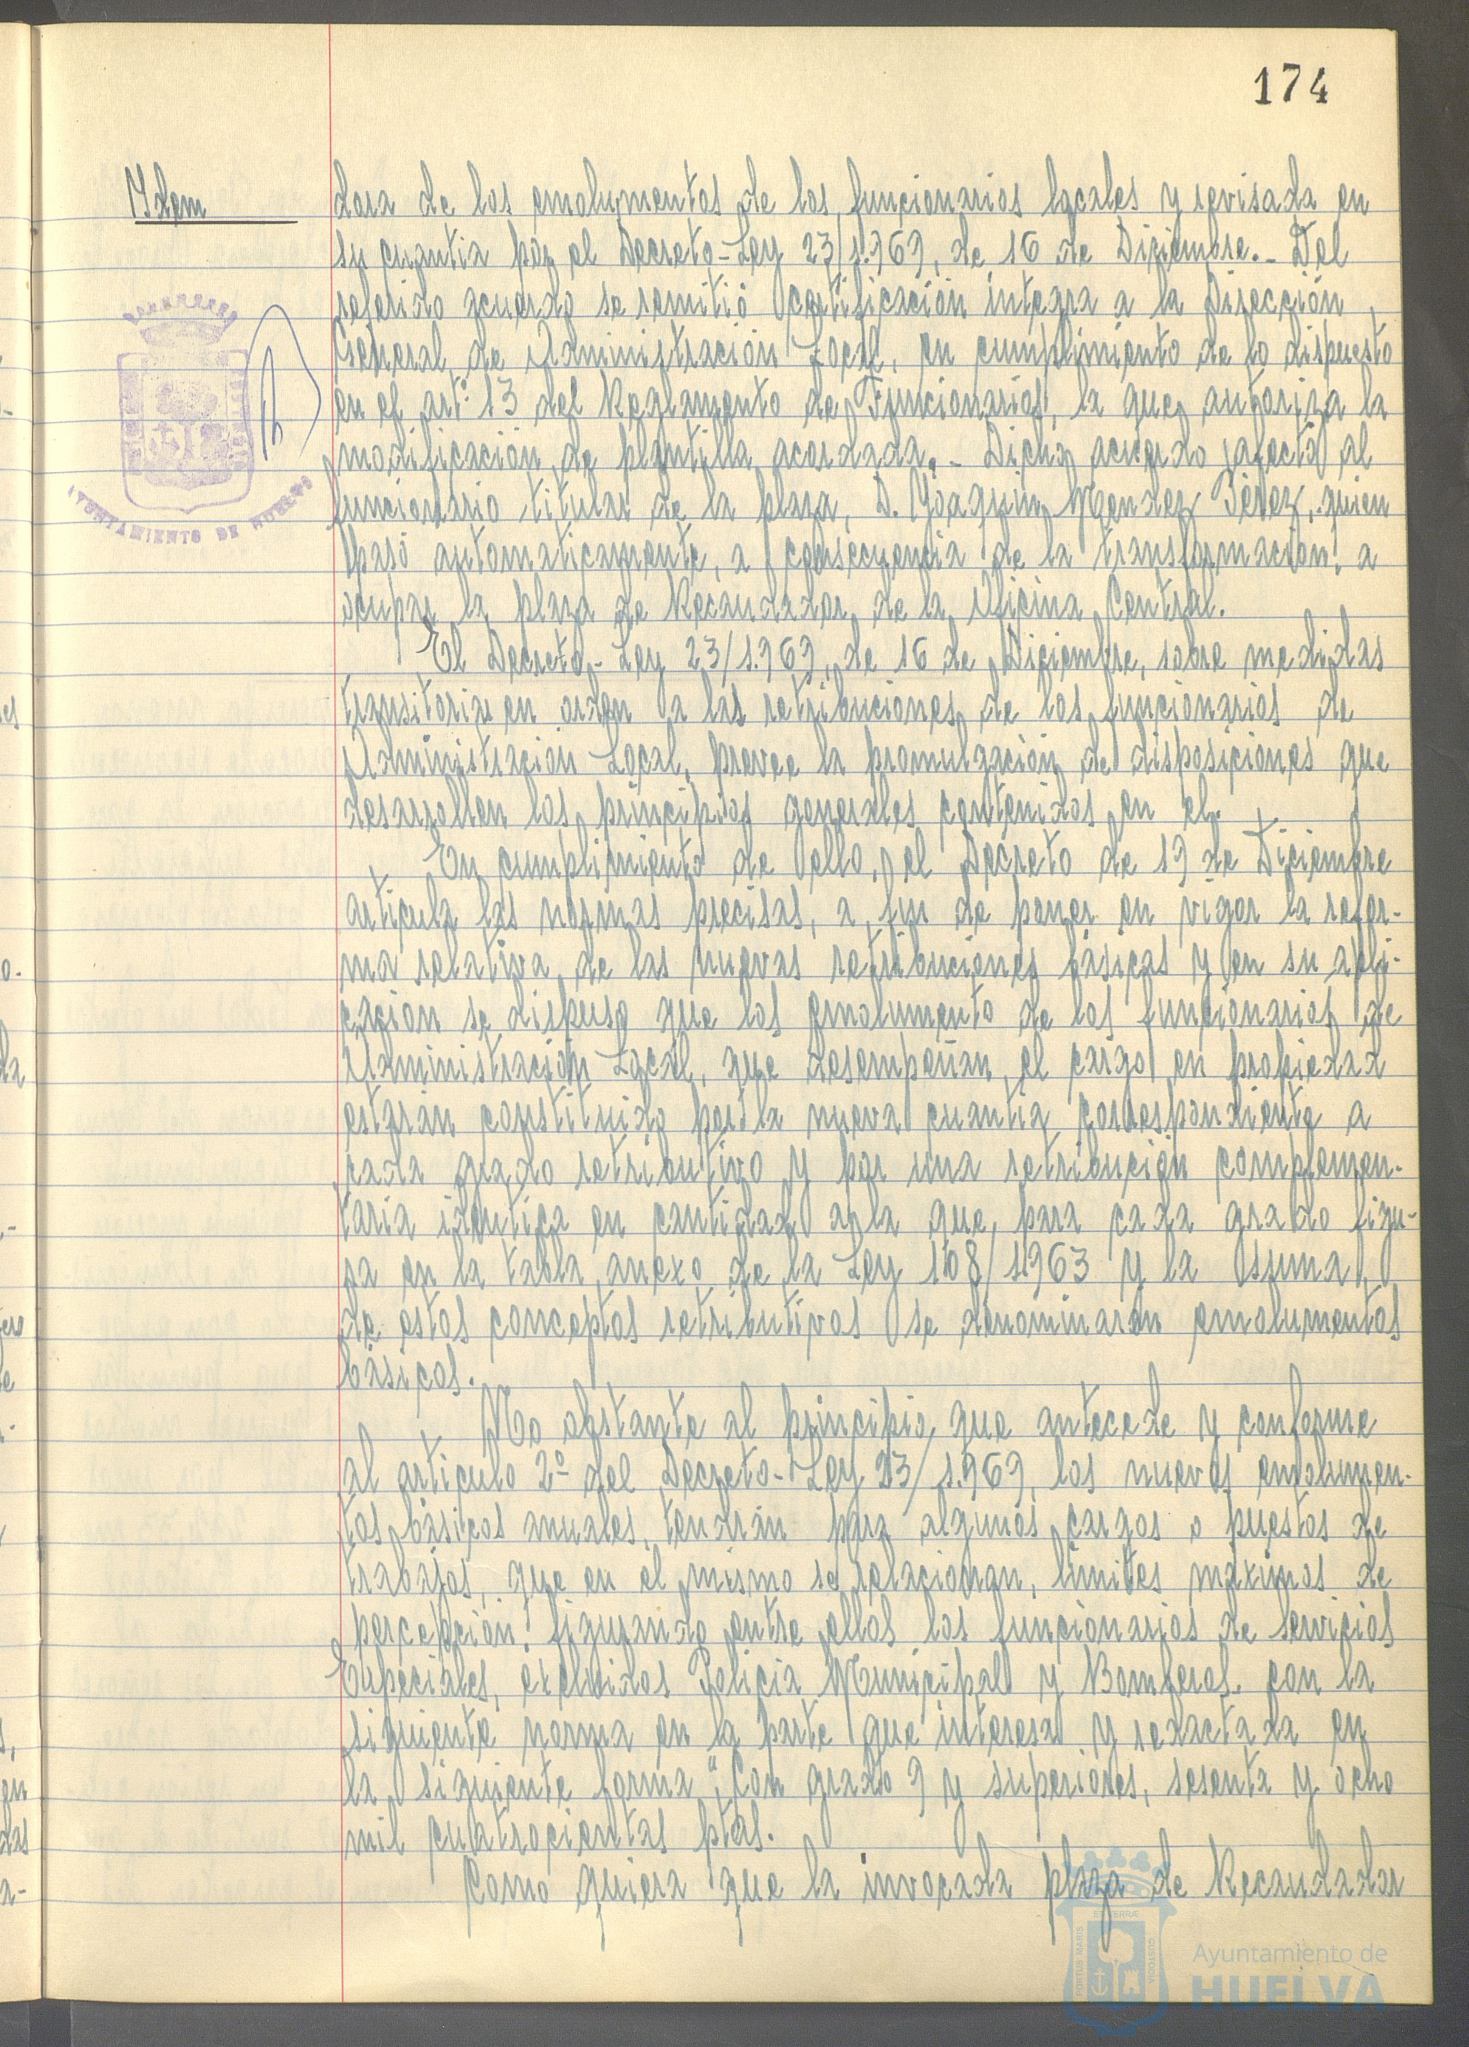 174
Ydem
dora de los emolumentos de los funcionarios locales y revisada en
su cuantia por el Decreto-Ley 23/1.969, de 16 de Diciembre.- Del
referido acuerdo se remitió certificación integra a la Dirección
General de Administración Local, en cumplimiento de lo dispuesto
en el artº 13 del Reglamento de Funcionarios, la que autoriza la
modificación de plantilla acordada.- Dicho acuerdo afecta al
funcionario titular de la plaza, D. Joaquin Mendez Pérez, quien
pasó automaticamente, a consecuencia de la transformación, a
ocupar la plaza de Recaudador de la Oficina Central.
El Decreto-Ley 23/1.969, de 16 de Diciembre, sobre medidas
transitorias en orden a las retribuciones de los funcionarios de
Administración Local, prevee la promulgación de disposiciones que
desarrollen los principios generales contenidos en el.
En cumplimiento de ello, el Decreto de 19 de Diciembre
articula las normas precisas, a fin de poner en vigor la refor-
ma relativa de las nuevas retribuciones básicas y en su apli-
cación se dispuso que los emolumento de los funcionarios de
Administración Local, que desempeñan el cargo en propiedad
estarán constituido por la nueva cuantia correspondiente a
cada grado retributivo y por una retribución complemen-
taria identica en cantidad a la que, para cada grado figu-
ra en la tabla anexo de la Ley 108/1963 y la suma
de estos conceptos retributivos se denominarán emolumentos
básicos.
No obstante al principio que antecede y conforme
al articulo 2º del Decreto-Ley 23/1.969, los nuevos emolumen-
tos básicos anuales, tendrán para algunos cargos o puestos de
trabajos, que en él mismo se relacionan, limites máximos de
percepción, figurando entre ellos los funcionarios de Servicios
Especiales, excluidos Policia Municipal y Bomberos, con la
siguiente norma en la parte que interesa y redactada en
la siguiente forma "Con grado 9 y superiores, sesenta y ocho
mil cuatrocientas ptas.
Como quiera que la invocada plaza de Recaudador
AYUNTAMIENTO DE HUELVA
PORTUS MARIS
ET TERRÆ
CUSTODIA
Ayuntamiento de
HUELVA